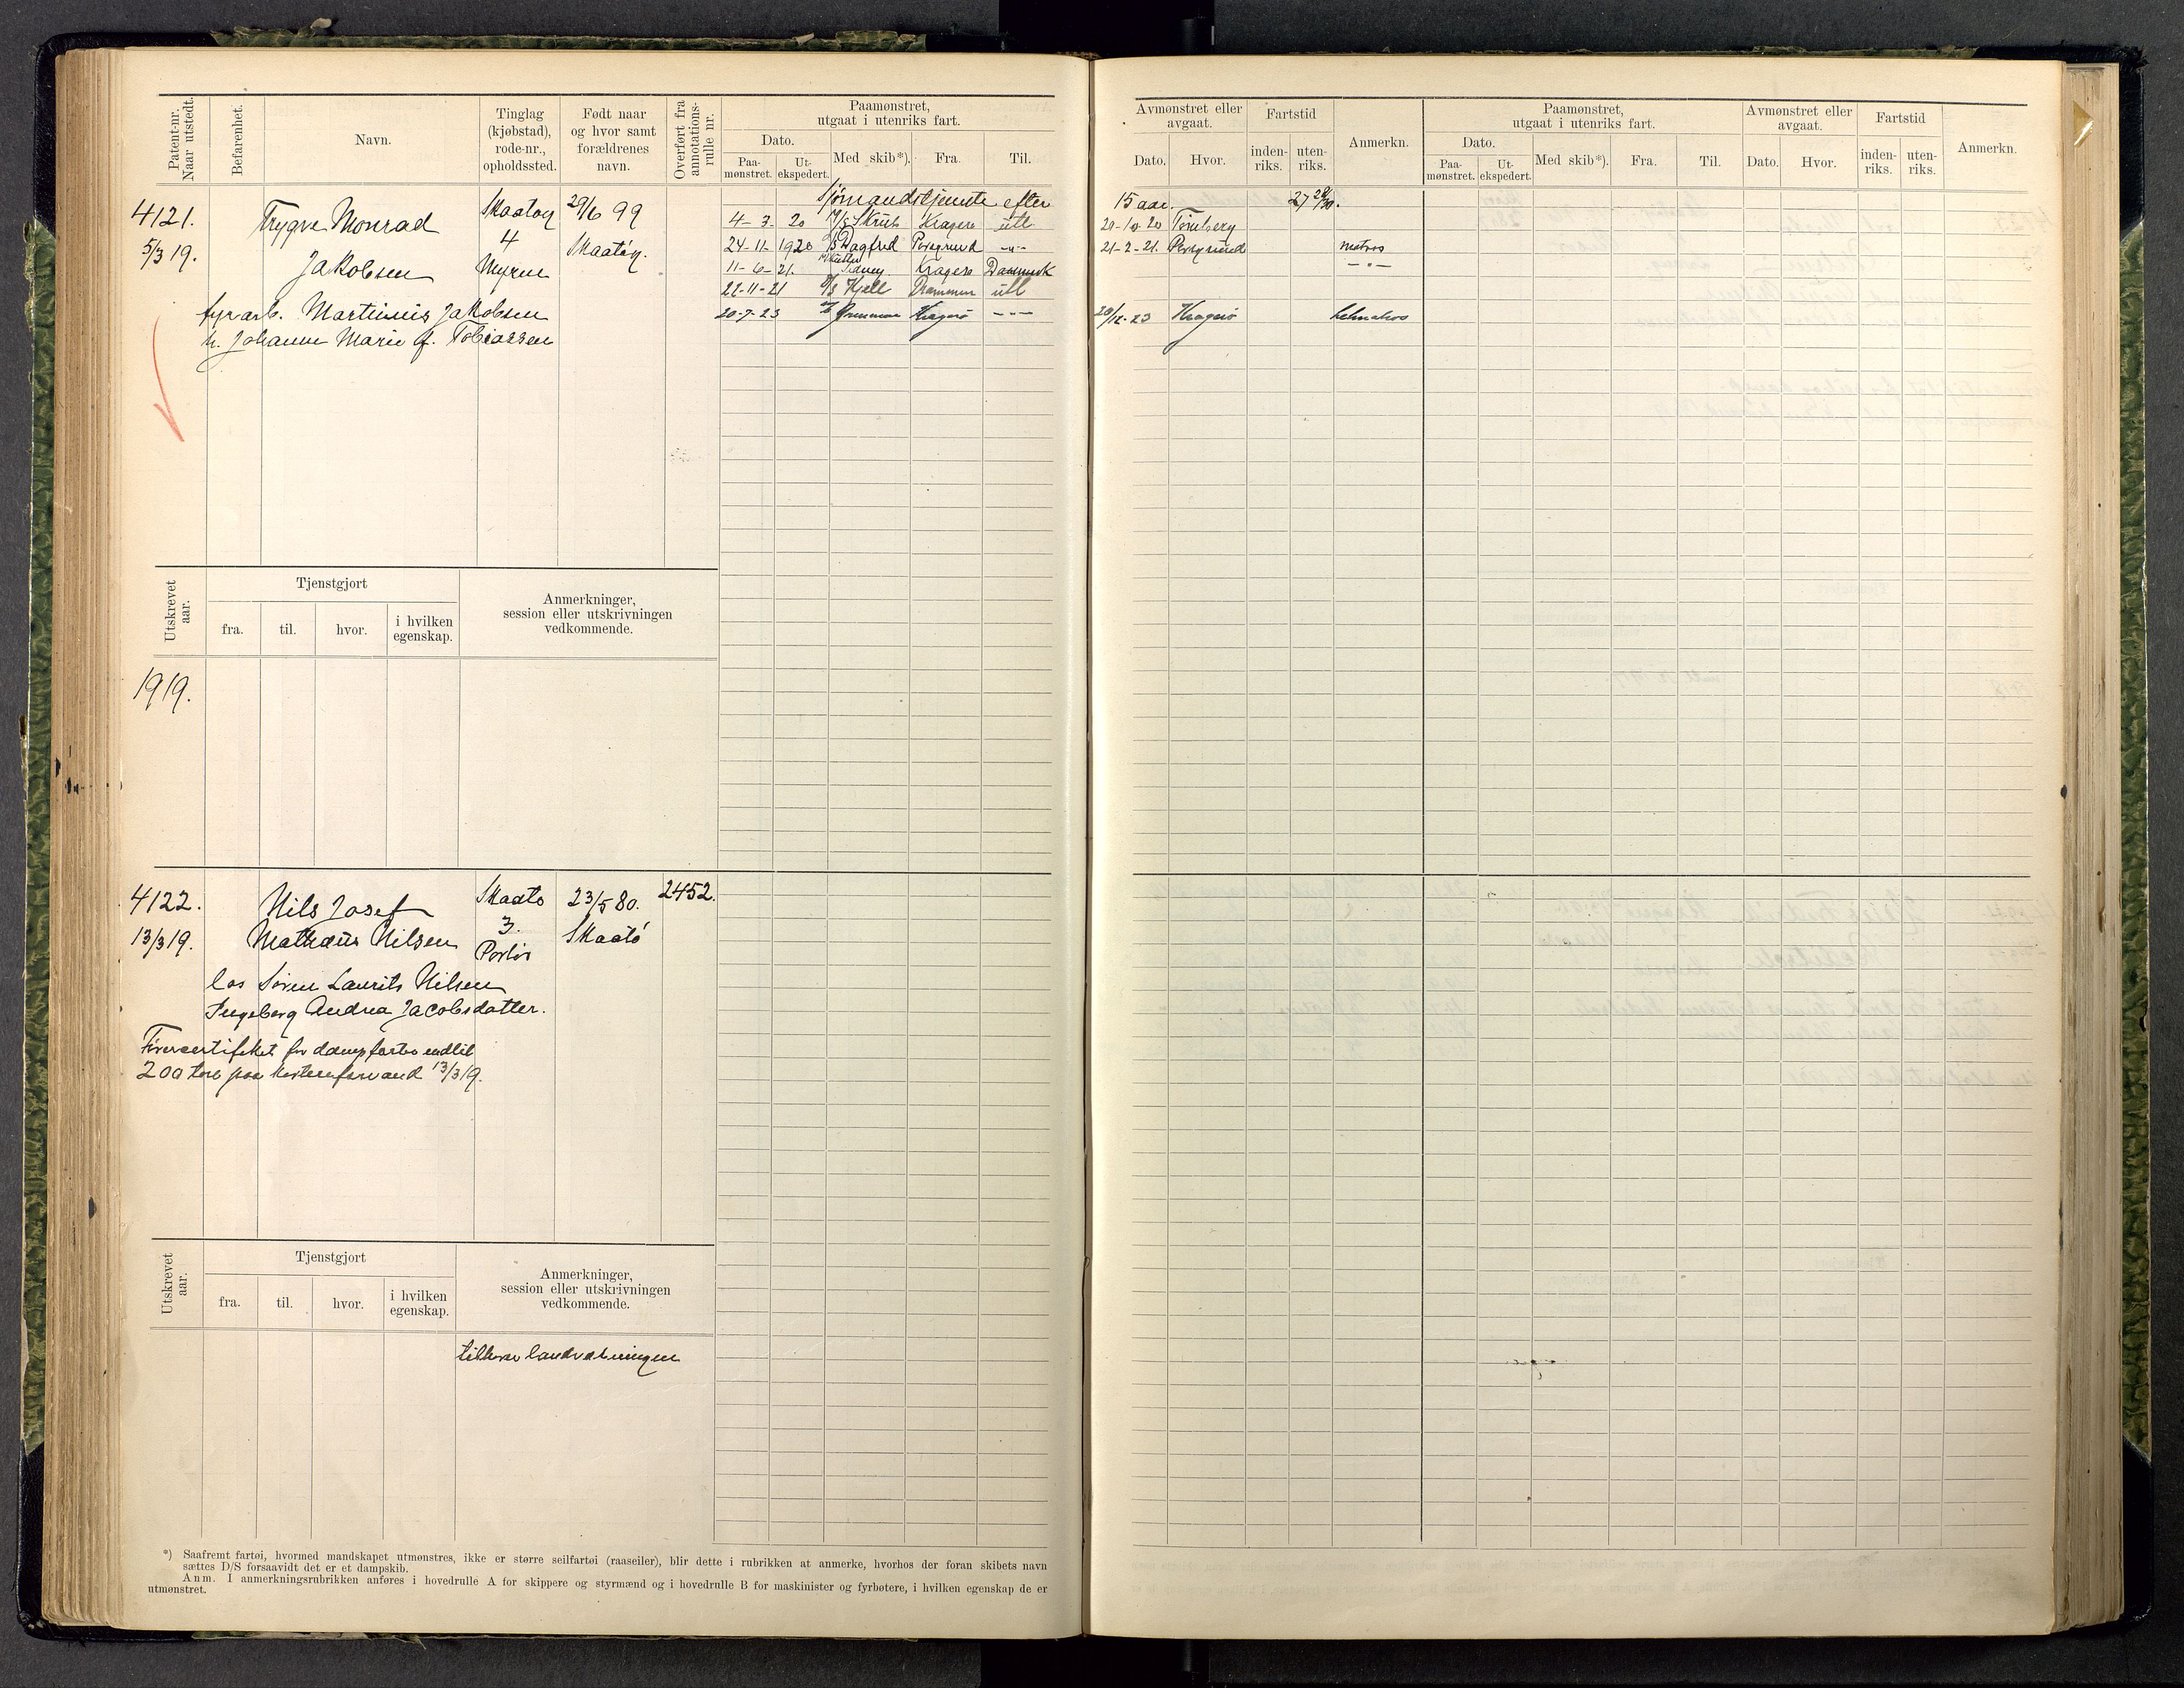 Patent-nr. Naar utstedt.
Befarenhet.
Navn.
Tinglag (kjøbstad), rode-nr., opholdssted.
Født naar og hvor samt forældrenes navn.
Overført fra annotations-rulle nr.
Paamønstret, utgaat i utenriks fart.
Dato.
Paa-mønstret.
Ut-ekspedert.
Med skib*).
Fra.
Til.
Avmønstret eller avgaat.
Dato.
Hvor.
Fartstid
inden-riks.
uten-riks.
Anmerkn.
Paamønstret, utgaat i utenriks fart.
Dato.
Paa-mønstret.
Ut-ekspedert.
Med skib*).
Fra.
Til.
Avmønstret eller avgaat.
Dato.
Hvor.
Fartstid
inden-riks.
uten-riks.
Anmerkn.
Sjømandstjeneste efter 15 aar. 27
4121. Trygve Monrad Skaatøy 29/6 99
5/3 19. Jakobsen 4 Skaatøy.
Myren
fyrarb. Martinius Jakobsen
h. Johanne Marie f. Tobiassen
4-3-20 M/S Kragerø utl 20-10-20 Tønsberg
24-11-1920 Dagfred Porsgrund -"- 21-2-21. Porsgrund matros
11-6-21. Kragerø Danmark -"-
22-11-21 Kjell Drammen utl
20-7-23 Kragerø -"- 20/12-23 Kragerø
Utskrevet aar.
Tjenstgjort
fra.
til.
hvor.
i hvilken egenskap.
Anmerkninger, session eller utskrivningen vedkommende.
1919.
4122. Nils Josef Skaatø 23/5 80. 2452.
13/3 19. Mathæus Nilsen 3. Skaatø
Portør
los Søren Laurits Nilsen
Ingeborg Andrea Jacobsdatter.
Førercertifikat for dampfartøi indtil
200 tons paa 13/3 19.
Utskrevet aar.
Tjenstgjort
fra.
til.
hvor.
i hvilken egenskap.
Anmerkninger, session eller utskrivningen vedkommende.
tilhører landværningen
*) Saafremt fartøi, hvormed mandskapet utmønstres, ikke er større seilfartøi (raaseiler), blir dette i rubrikken at anmerke, hvorhos der foran skibets navn
sættes D/S forsaavidt det er et dampskib.
Anm. I anmerkningsrubrikken anføres i hovedrulle A for skippere og styrmænd og i hovedrulle B for maskinister og fyrbøtere, i hvilken egenskap de er
utmønstret.